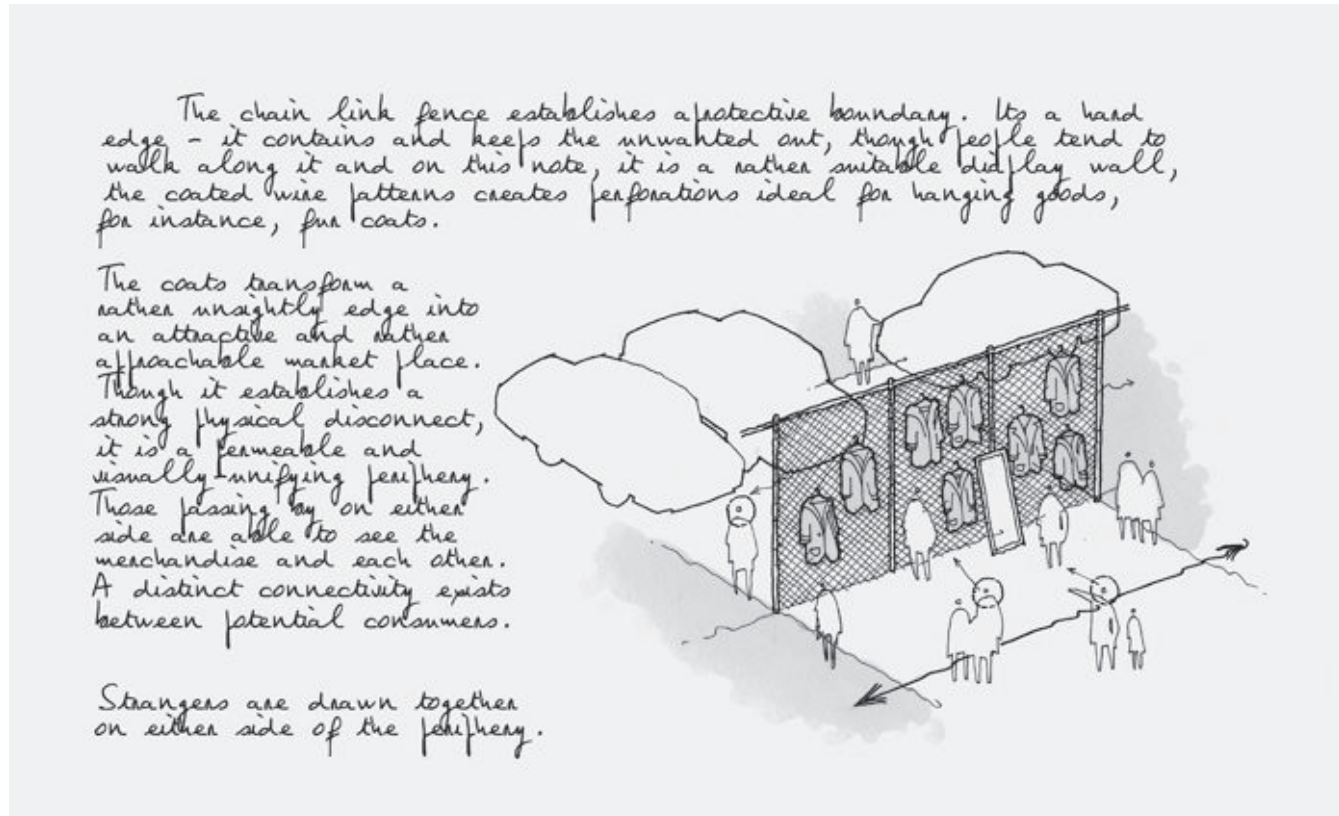 The chain link fence establishes a protective boundary. Its a hard
edge - it contains and keeps the unwanted out, though people tend to
walk along it and on this note, it is a rather suitable display wall,
the coated wire patterns creates perforations ideal for hanging goods,
for instance, fur coats.
The coats transform a
rather unsightly edge into
an attractive and rather
approachable market place.
Though it establishes a
strong physical disconnect,
it is a permeable and
visually unifying periphery.
Those passing by on either
side are able to see the
merchandise and each other.
A distinct connectivity exists
between potential consumers.
Strangers are drawn together
on either side of the periphery.